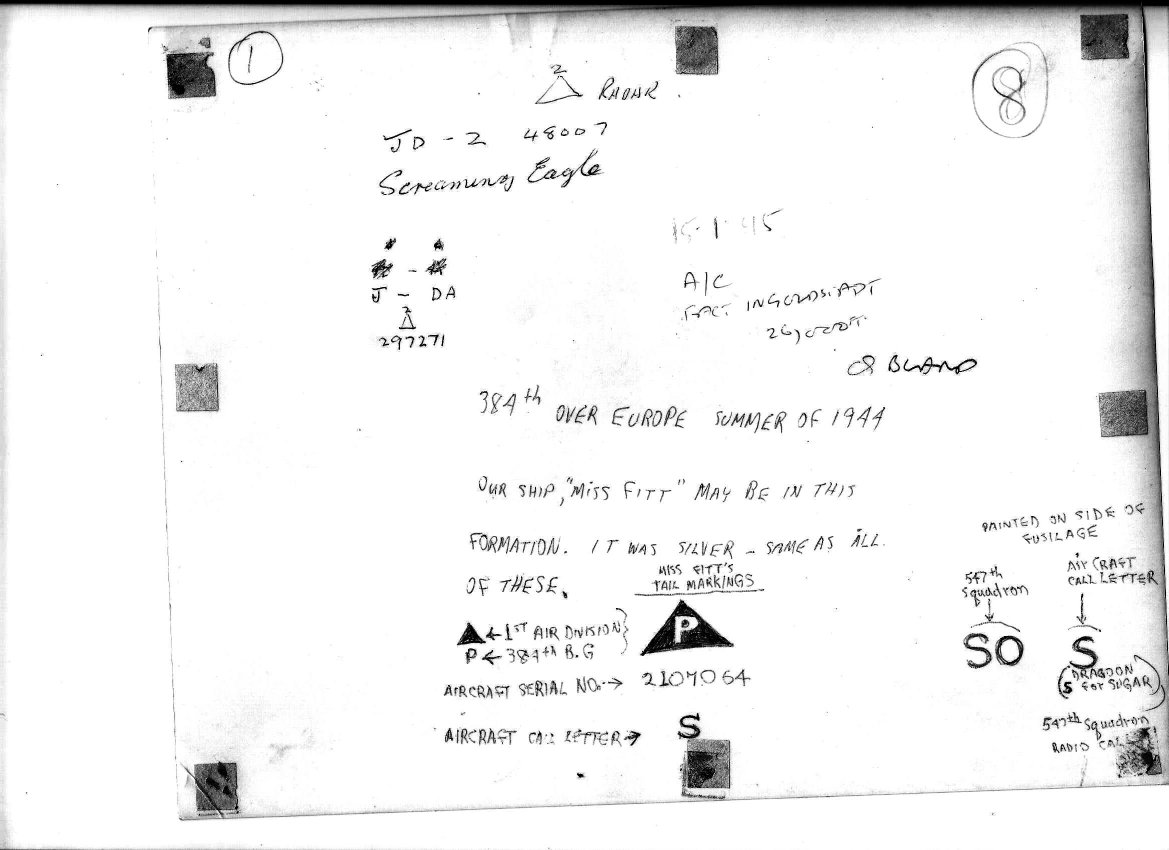 1
8
2
RADAR.
JD - 2 48007
Screaming Eagle
15·1·45
J - DA
2
297271
A/C
384th OVER EUROPE SUMMER OF 1944
OUR SHIP, "MISS FITT" MAY BE IN THIS
FORMATION. IT WAS SILVER - SAME AS ALL
OF THESE.
MISS FITT'S
TAIL MARKINGS
P
▲ ← 1ST AIR DIVISION
P ← 384th B.G
AIRCRAFT SERIAL NO. → 2107064
AIRCRAFT CALL LETTER → S
PAINTED ON SIDE OF
FUSILAGE
547th
Squadron
AIRCRAFT
CALL LETTER
SO S
(DRAGOON
S FOR SUGAR)
547th Squadron
RADIO CALL